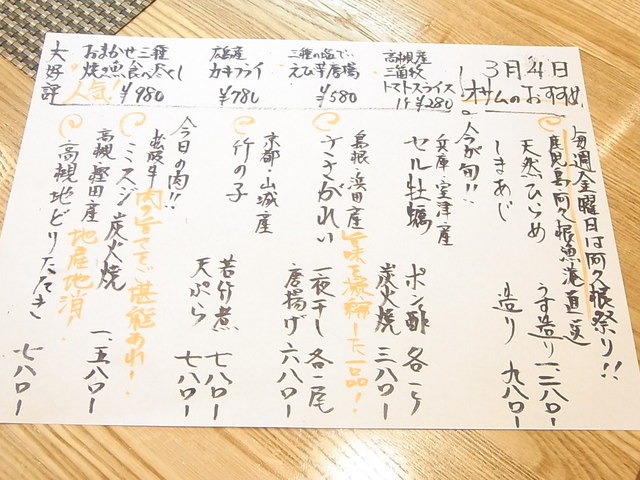 3月4日
オサムのおすすめ
高槻産
三箇牧
トマトスライス
1ケ ¥280
三種の塩で
えび芋唐揚
¥580
広島産
カキフライ
¥780
おまかせ三種
焼き魚食べ尽くし
人気! ¥980
大好評
毎週金曜日は阿久根祭り!!
鹿児島阿久根漁港直送
天然ひらめ うす造り 一二八〇ー
しまあじ 造り 九八〇ー
今が旬!!
兵庫・室津産
セル牡蠣 ポン酢 各一ケ
炭火焼 三八〇ー
旨味を凝縮した一品!
島根・浜田産
ささがれい 一夜干し 各一尾
唐揚げ 六八〇ー
京都・山城産
竹の子 若竹煮 七八〇ー
天ぷら 七八〇ー
今日の肉!!
肉の旨さをご堪能あれ!
松阪牛
ミスジ炭火焼 一、五八〇ー
高槻・樫田産
地産地消!
高槻地どりたたき 七八〇ー